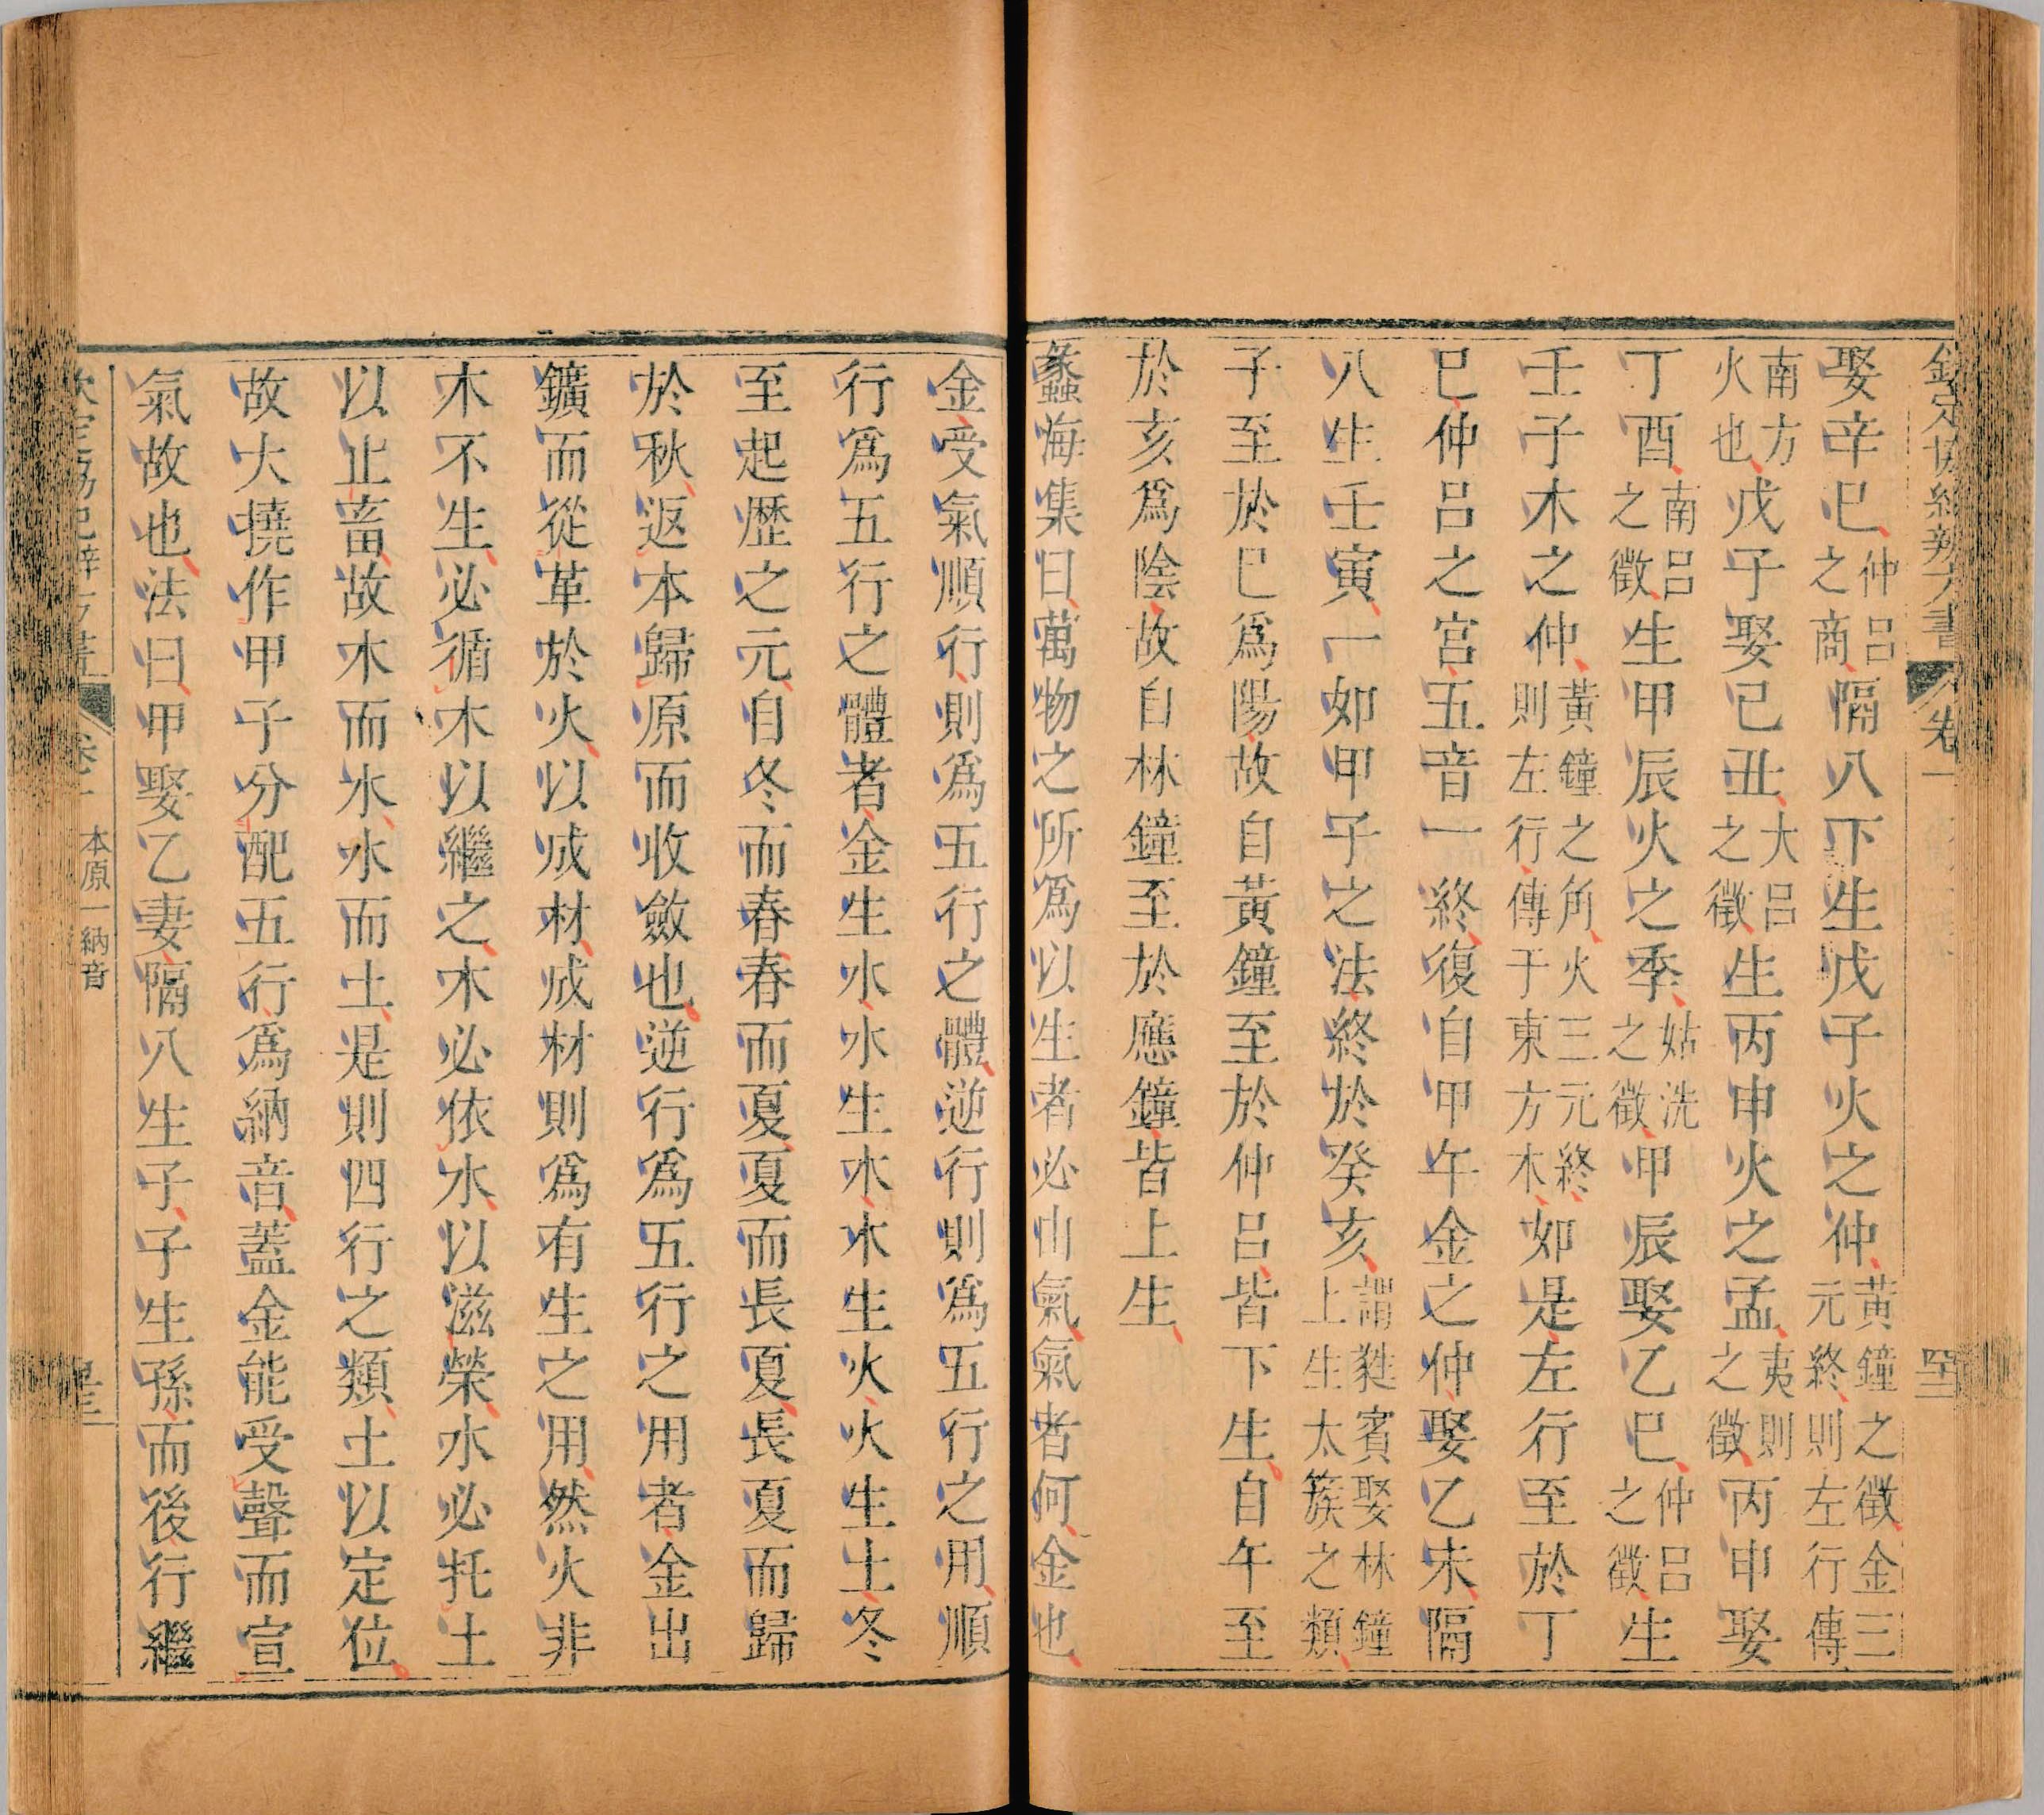 欽定協紀辨方書 卷一 四三
娶辛巳仲呂之商隔八下生戊子火之仲黃鐘之徵金三元終則左行傳
南方火也戊子娶己丑大呂之徵生丙申火之孟夷則之徵丙申娶
丁酉南呂之徵生甲辰火之季姑洗之徵甲辰娶乙巳仲呂之徵生
壬子木之仲黃鐘之角火三元終則左行傳于東方木如是左行至於丁
巳仲呂之宮五音一終復自甲午金之仲娶乙未隔
八生壬寅一如甲子之法終於癸亥謂蕤賓娶林鐘上生太簇之類
子至於巳爲陽故自黃鐘至於仲呂皆下生自午至
於亥爲陰故自林鐘至於應鐘皆上生
蠡海集曰萬物之所爲以生者必由氣氣者何金也
金受氣順行則爲五行之體逆行則爲五行之用順
行爲五行之體者金生水水生木木生火火生土冬
至起歷之元自冬而春春而夏夏而長夏長夏而歸
於秋返本歸原而收斂也逆行爲五行之用者金出
鑛而從革於火以成材成材則爲有生之用然火非
木不生必循木以繼之木必依水以滋榮水必托土
以止畜故木而水水而土是則四行之類土以定位
故大撓作甲子分配五行爲納音蓋金能受聲而宣
氣故也法曰甲娶乙妻隔八生子子生孫而後行繼
本原一納音